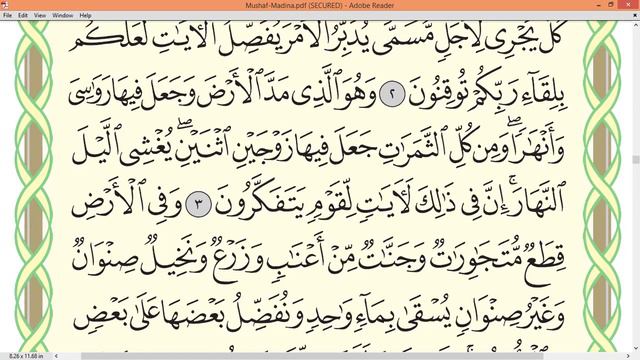 Mushaf-Madina.pdf (SECURED) - Adobe Reader
File Edit View Window Help
كُلٌّ يَجْرِى لِأَجَلٍ مُّسَمًّى يُدَبِّرُ ٱلْأَمْرَ يُفَصِّلُ ٱلْآيَٰتِ لَعَلَّكُم
بِلِقَآءِ رَبِّكُمْ تُوقِنُونَ ٢ وَهُوَ ٱلَّذِى مَدَّ ٱلْأَرْضَ وَجَعَلَ فِيهَا رَوَٰسِىَ
وَأَنْهَٰرًا ۖ وَمِن كُلِّ ٱلثَّمَرَٰتِ جَعَلَ فِيهَا زَوْجَيْنِ ٱثْنَيْنِ ۖ يُغْشِى ٱلَّيْلَ
ٱلنَّهَارَ ۚ إِنَّ فِى ذَٰلِكَ لَءَايَٰتٍ لِّقَوْمٍ يَتَفَكَّرُونَ ٣ وَفِى ٱلْأَرْضِ
قِطَعٌ مُّتَجَٰوِرَٰتٌ وَجَنَّٰتٌ مِّنْ أَعْنَٰبٍ وَزَرْعٌ وَنَخِيلٌ صِنْوَانٌ
وَغَيْرُ صِنْوَانٍ يُسْقَىٰ بِمَآءٍ وَٰحِدٍ وَنُفَضِّلُ بَعْضَهَا عَلَىٰ بَعْضٍ
8.26 x 11.68 in